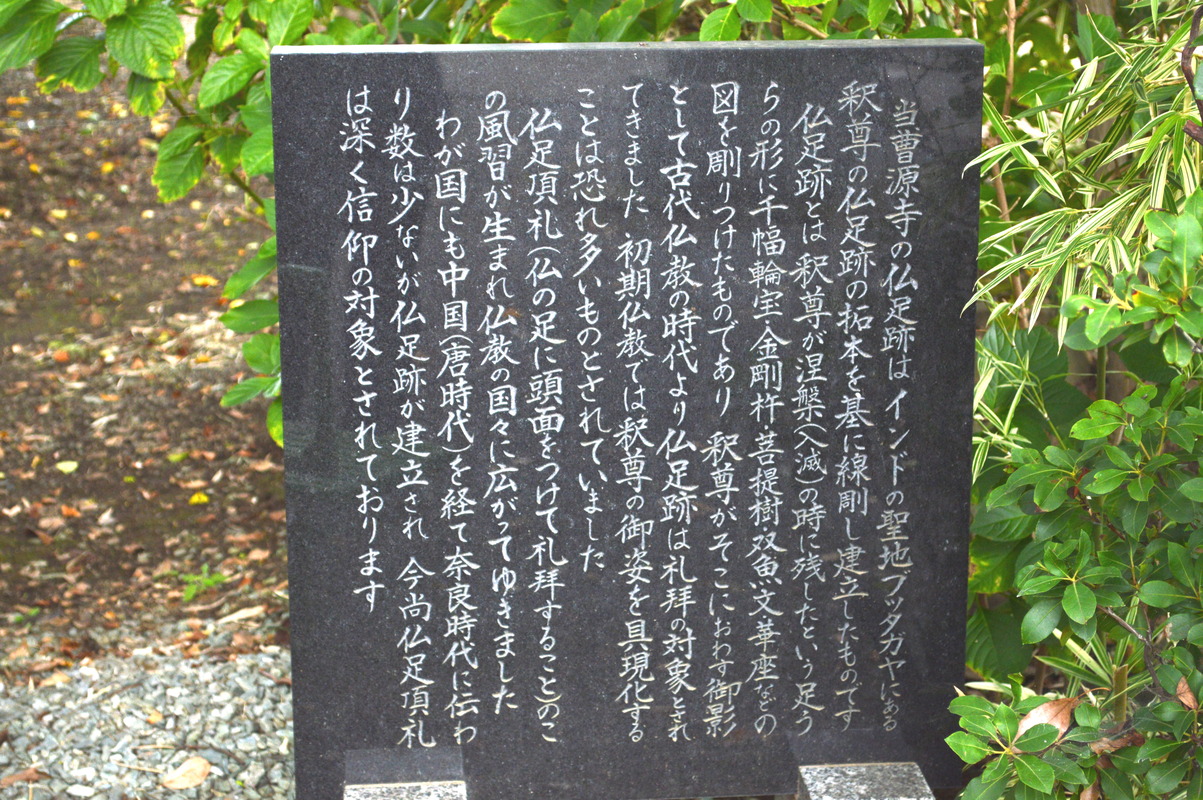 当曹源寺の仏足跡は インドの聖地ブッタガヤにある
釈尊の仏足跡の拓本を基に線剛し建立したものです
仏足跡とは 釈尊が涅槃(入滅)の時に残したという足う
らの形に千幅輪宝・金剛杵・菩提樹・双魚文・華座などの
図を剛りつけたものであり 釈尊がそこにおわす御影
として古代仏教の時代より仏足跡は礼拝の対象とされ
てきました 初期仏教では釈尊の御姿を具現化する
ことは恐れ多いものとされていました
仏足頂礼(仏の足に頭面をつけて礼拝すること)のこ
の風習が生まれ仏教の国々に広がってゆきました
わが国にも中国(唐時代)を経て奈良時代に伝わ
り数は少ないが仏足跡が建立され 今尚仏足頂礼
は深く信仰の対象とされております